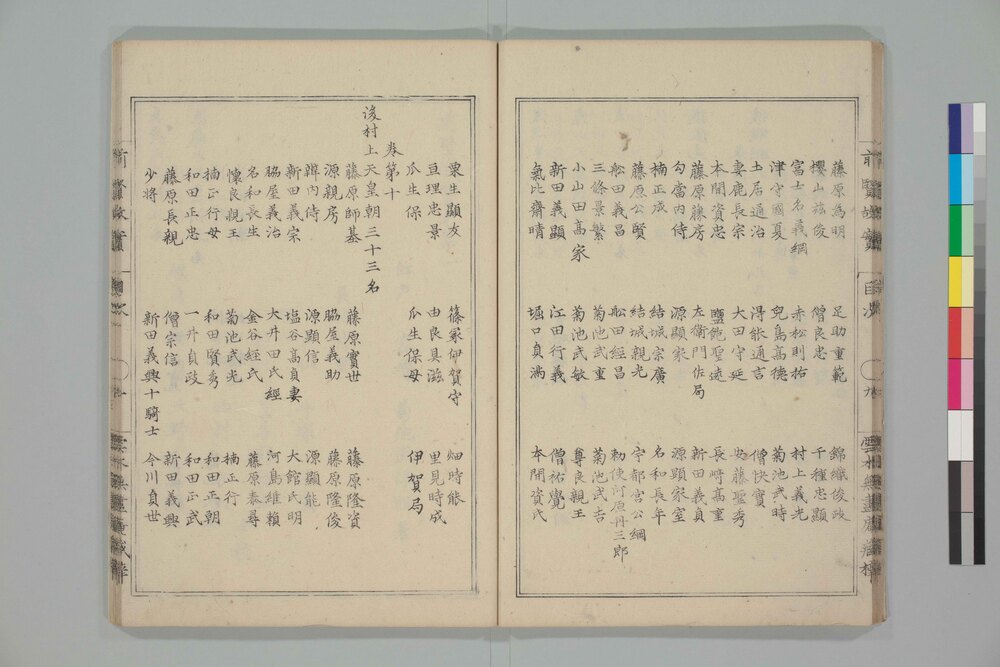 藤原為明 足助重範 錦織俊政
櫻山茲俊 僧良忠 千種忠顯
富士名義綱 赤松則祐 村上義光
津守國夏 兒島高徳 菊池武時
土居通治 得能通言 僧快實
妻鹿長宗 大田守延 安藤聖秀
本間資忠 鹽飽聖遠 長﨑高重
藤原藤房 左衛門佐局 新田義貞
勾當内侍 源顯家 源顯家室
楠正成 結城宗廣 名和長年
藤原公賢 結城親光 宇都宮公綱
舩田義昌 舩田經昌 勅使河原丹三郎
三條景繁 菊池武重 菊池武吉
小山田高家 菊池武敏 尊良親王
新田義顯 江田行義 僧祐覺
氣比齋晴 堀口貞満 本間資氏
前賢故實
目次
九
雲水無盡庵藏梓
粟生顯友 篠冢伊賀守 畑時能
亘理忠景 由良具滋 里見時成
瓜生保 瓜生保母 伊賀局
卷第十
後村上天皇朝三十三名
藤原師基 藤原實世 藤原隆資
源親房 脇屋義助 藤原隆俊
辨内侍 源顯信 源顯能
新田義宗 塩谷高貞妻 大館氏明
脇屋義治 大井田氏經 河島維頼
名和長生 金谷經氏 藤原泰尋
懐良親王 菊池武光 楠正行
楠正行母 和田賢秀 和田正朝
和田正忠 一井貞政 和田正武
藤原長親 僧宗信 新田義興
少将 新田義興十騎士 今川貞世